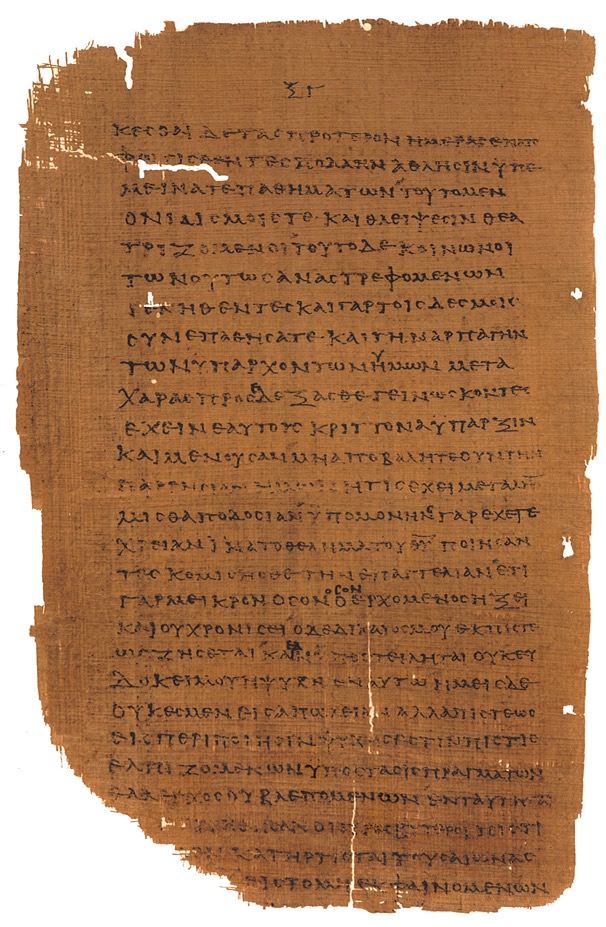 ΞΓ
ΚΕCΘΑΙ ΔΕ ΤΑC ΠΡΟΤΕΡΟΝ ΗΜΕΡΑC ΕΝ
ΦΩΤΙCΘΕΝΤΕC ΠΟΛΛΗΝ ΑΘΛΗCΙΝ ΥΠΕ
ΜΕΙΝΑΤΕ ΠΑΘΗΜΑΤΩΝ ΤΟΥΤΟ ΜΕΝ
ΟΝΙΔΙCΜΟΙC ΤΕ· ΚΑΙ ΘΛΕΙΨΕCΙΝ ΘΕΑ
ΤΡΙΖΟΜΕΝΟΙ ΤΟΥΤΟ ΔΕ ΚΟΙΝΩΝΟΙ
ΤΩΝ ΟΥΤΩC ΑΝΑCΤΡΕΦΟΜΕΝΩΝ
ΓΕΝΗΘΕΝΤΕC ΚΑΙ ΓΑΡ ΤΟΙC ΔΕCΜΟΙC
CΥΝΕΠΑΘΗCΑΤΕ· ΚΑΙ ΤΗΝ ΑΡΠΑΓΗΝ
ΤΩΝ ΥΠΑΡΧΟΝΤΩΝ ΥΜΩΝ ΜΕΤΑ
ΧΑΡΑC ΠΡΟCΕΔΕΞΑCΘΕ· ΓΕΙΝΩCΚΟΝΤΕC
ΕΧΕΙΝ ΕΑΥΤΟΥC ΚΡΙΤΤΟΝΑ ΥΠΑΡΞΙΝ
ΚΑΙ ΜΕΝΟΥCΑΝ ΜΗ ΑΠΟΒΑΛΗΤΕ ΟΥΝ ΤΗΝ
ΠΑΡΡΗCΙΑΝ ΥΜΩΝ ΗΤΙC ΕΧΕΙ ΜΕΓΑΛΗΝ
ΜΙCΘΑΠΟΔΟCΙΑΝ ΥΠΟΜΟΝΗC ΓΑΡ ΕΧΕΤΕ
ΧΡΕΙΑΝ ΙΝΑ ΤΟ ΘΕΛΗΜΑ ΤΟΥ ΘΥ ΠΟΙΗCΑΝ
ΤΕC ΚΟΜΙCΗCΘΕ ΤΗΝ ΕΠΑΓΓΕΛΙΑΝ ΕΤΙ
ΓΑΡ ΜΕΙΚΡΟΝ ΟCΟΝ ΟCΟΝ Ο ΕΡΧΟΜΕΝΟC ΗΞΕΙ
ΚΑΙ ΟΥ ΧΡΟΝΙCΕΙ Ο ΔΕ ΔΙΚΑΙΟC ΜΟΥ ΕΚ ΠΙCΤΕ
ΩC ΖΗCΕΤΑΙ ΚΑΙ ΕΑΝ ΥΠΟCΤΕΙΛΗΤΑΙ ΟΥΚ ΕΥ
ΔΟΚΕΙ ΜΟΥ Η ΨΥΧΗ ΕΝ ΑΥΤΩ ΗΜΕΙC ΔΕ
ΟΥΚ ΕCΜΕΝ ΕΙC ΑΠΩΛΕΙΑΝ ΑΛΛΑ ΠΙCΤΕΩC
ΕΙC ΠΕΡΙΠΟΙΗCΙΝ ΨΥΧΗC ΕCΤΙΝ ΠΙCΤΙC
ΕΛΠΙΖΟΜΕΝΩΝ ΥΠΟCΤΑCΙC ΠΡΑΓΜΑΤΩΝ
ΕΛΕΓΧΟC ΟΥ ΒΛΕΠΟΜΕΝΩΝ ΕΝ ΤΑΥΤΗ
ΟΙ ΠΡΕCΒΥΤΕΡΟΙ ΠΙCΤΙ
ΚΑΤΗΡΤΙCΘΑΙ ΤΟΥC ΑΙΩΝΑC
ΕΙC ΤΟ ΜΗ ΕΚ ΦΑΙΝΟΜΕΝΩΝ